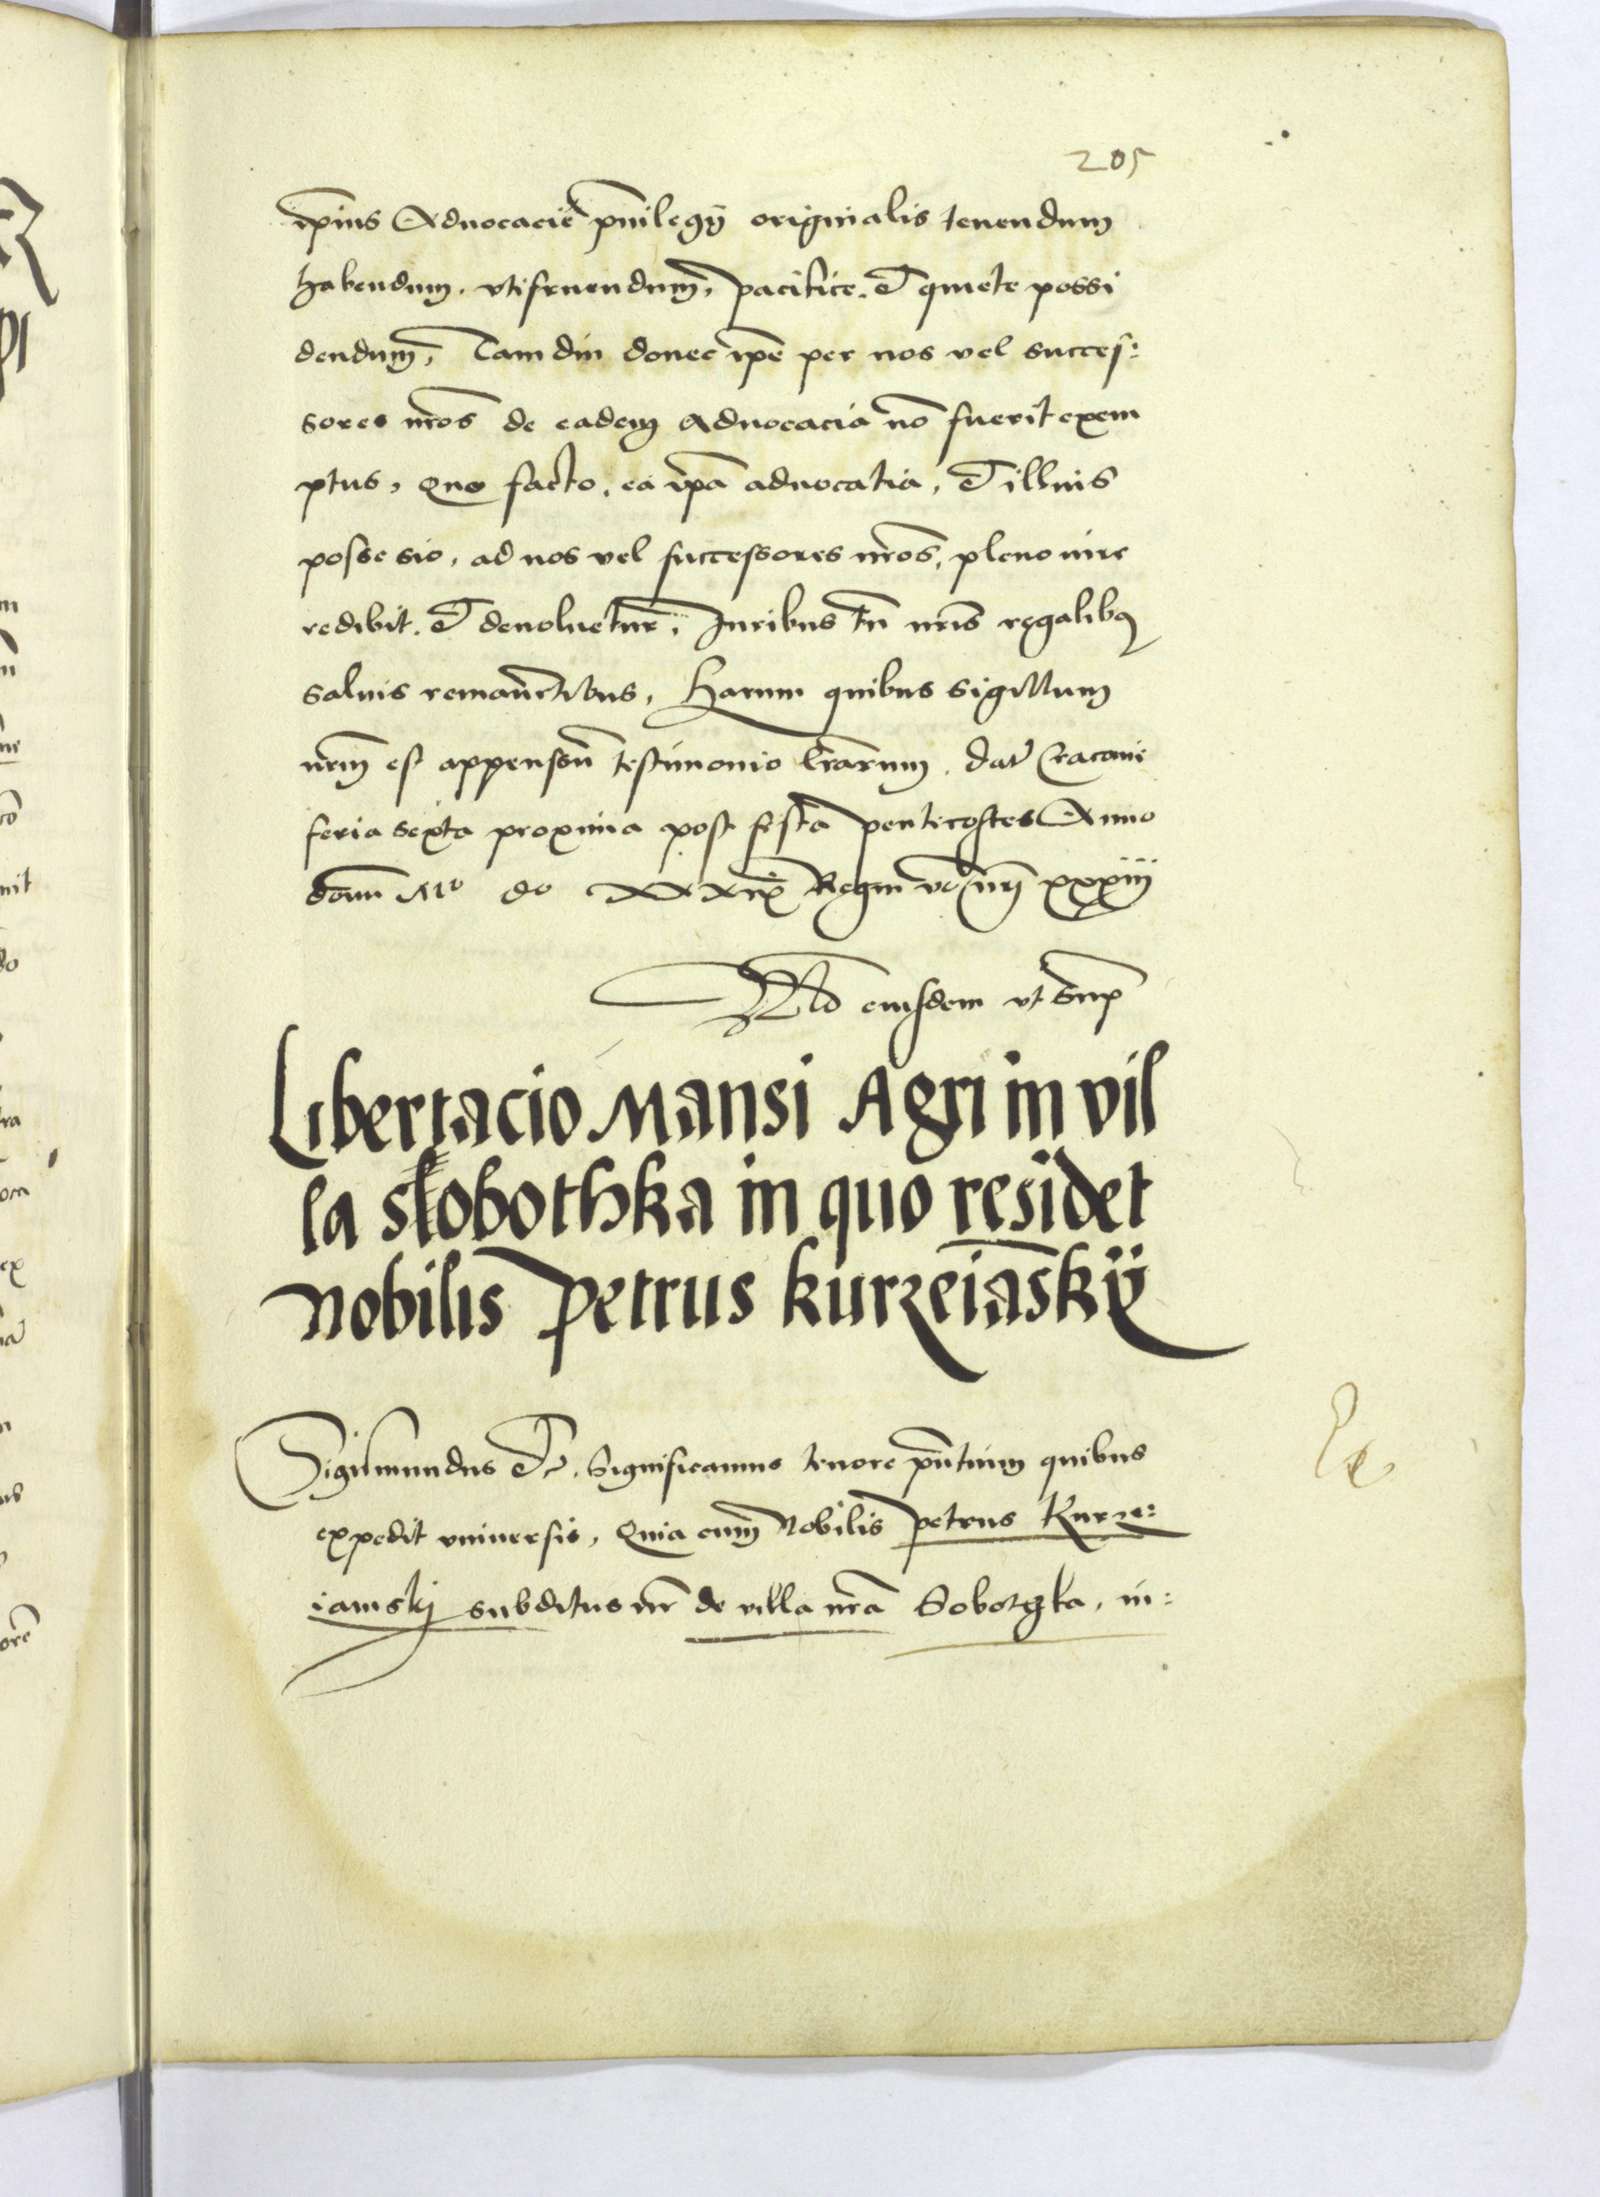 205
ip̄ius Aduocacie p̄uilegÿ originalis tenendum
habendum, vtifruendum̄, pacifice, Et quiete possi
dendum̄, Tam diu donec ip̄e per nos vel succes:
sores nr̄os de eadem Aduocacia nō fuerit exem
ptus, Quo facto, ea ip̄a aduocatia, Et illius
possesio, ad nos vel successores nr̄os, pleno iure
redibit, Et deuoluetur, Iuribus tn̄ nr̄is regalibꝰ
saluis remanēntibus, Harum quibus sigillum
nr̄m est appensū testimonio lr̄arum, dat̄ Cracouie
feria sexta proxima post festa pentecostes Anno
domī Mo do XXXix Regni vō nr̄i xxxiii
Ad eiusdem vt sup̄
Libertacio Mansi Agri in vil
la Slobothka in quo residet
Nobilis Petrus Kurzeiāskÿ
Sigismundus Etc, Significamus tenore pn̄tium quibus
expedit vniuersis, Quia cum̄ Nobilis Petrus Kurze:
iamskj subditus nr̄ de villa nr̄a Sobotgka, in: